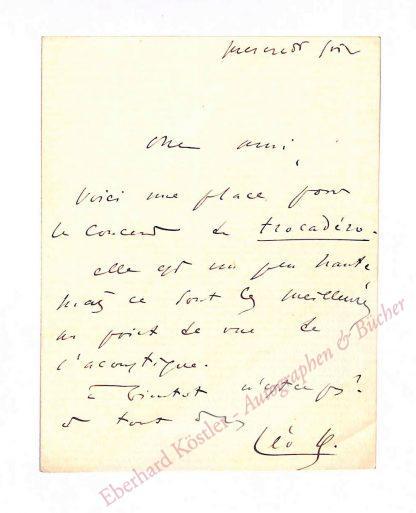 mercredi soir
Cher ami,
Voici une place pour
le concert du trocadéro.
elle est un peu haute
mais ce sont les meilleures
au point de vue de
l'acoustique.
à Bientôt n'est ce pas?
et tout
Léo
Eberhard Köstler - Autographen & Bücher